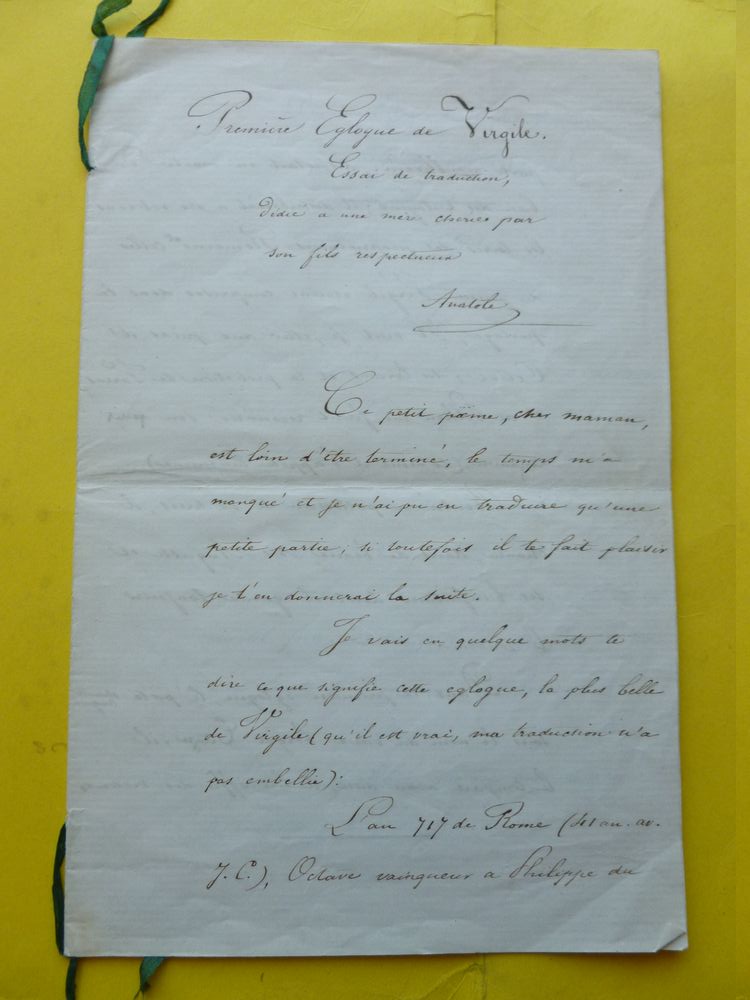 Première Eglogue de Virgile.
Essai de traduction,
dédié a une mère cheriee par
son fils respectueux
Anatole
Ce petit poëme, cher maman,
est loin d'être terminé, le temps m'a
manqué et je n'ai pu en traduire qu'une
petite partie; si toutefois il te fait plaisir
je t'en donnerai la suite.
Je vais en quelque mots te
dire ce que signifie cette eglogue, la plus belle
de Virgile (qu'il est vrai, ma traduction n'a
pas embellie):
L'an 717 de Rome (41 an. av.
J. C.), Octave vainqueur a Philippe du